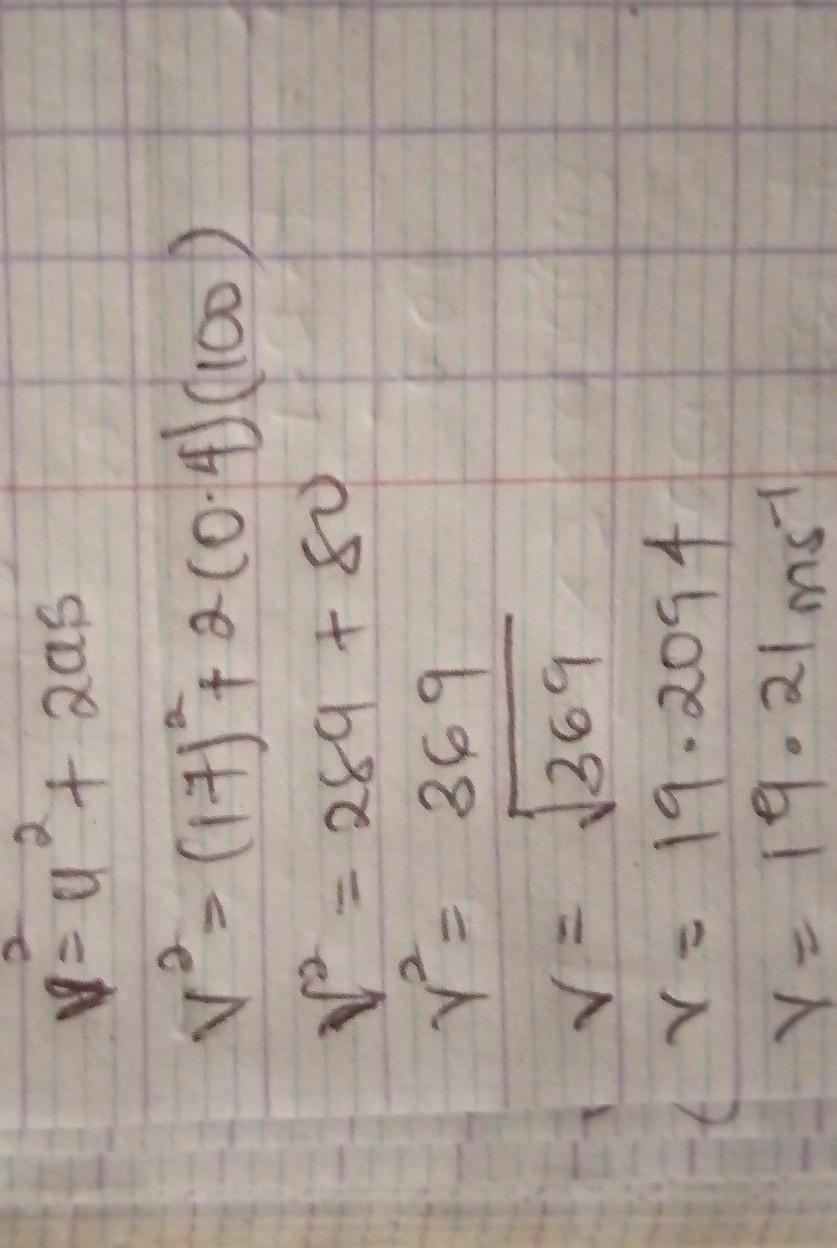 v² = u² + 2as
v² = (17)² + 2(0.4)(100)
v² = 289 + 80
v² = 369
v = √369
v = 19.2094
v = 19.21 ms⁻¹